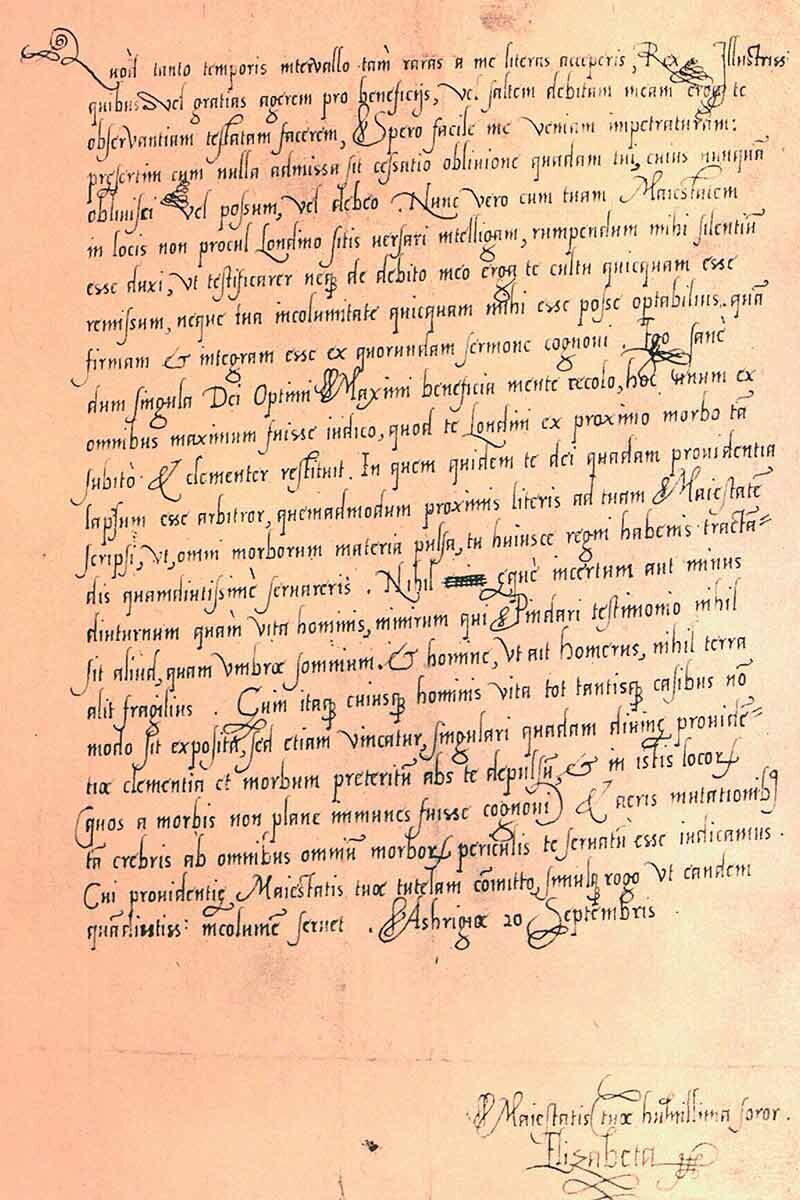 Quòd tanto temporis intervallo tam raras a me literas acceperis, Rex Illustriss:
quibus vel gratias agerem pro beneficijs, vel saltem debitam meam erga te
observantiam testatam facerem, Spero facile me veniam impetraturam:
presertim cum nulla admissa sit cessatio oblivione quadam tui, cuius nunquã
oblivisci vel possum, vel debeo. Nunc vero cum tuam Maiestatem
in locis non procul Londino sitis versari intelligam, rumpendum mihi silentiũ
esse duxi, vt testificarer neq̃ de debito meo erga te cultu quicquam esse
remissum, neque tua incolumitate quicquam mihi esse posse optabilius. quã
firmam & integram esse ex quorundam sermone cognovi. Ego sanè
dum singula Dei Optimi Maximi beneficia mente recolo, hoc unum ex
omnibus maximum fuisse iudico, quod te Londini ex proximo morbo tã
subitò & clementer restituit. In quem quidem te dei quadam providentia
lapsum esse arbitror, quemadmodum proximis literis ad tuam Maiestatẽ
scripsi, vt, omni morborum materia pulsa, tu huiusce regni habenis tractã=
dis quamdiutissimè servareris. Nihil ęquè incertum aut minus
diuturnum quàm vita hominis, nimirum qui Pindari testimonio nihil
sit aliud, quam vmbræ somnium. & homine, vt ait homerus, nihil terra
alit fragilius. Cum itaq̃ cuiusq̃ hominis vita tot tantisq̃ casibus nõ
modo sit exposita, sed etiam vincatur, singulari quadam divinę providẽ=
tiæ clementia et morbum preteritũ abs te depulsũ, & in istis locorũ
(quos a morbis non plane immunes fuisse cognovi) & aeris mutationibꝫ
tã crebris ab omnibus omniũ morborũ periculis te servatũ esse iudicamus.
Cui providentię Maiestatis tuæ tutelam cõmitto, simulq̃ rogo vt eandem
quãdiutiss: incolumẽ servet. Ashrigiæ 20 Septembris.
Maiestatis tuæ humillima soror.
Elizabeta